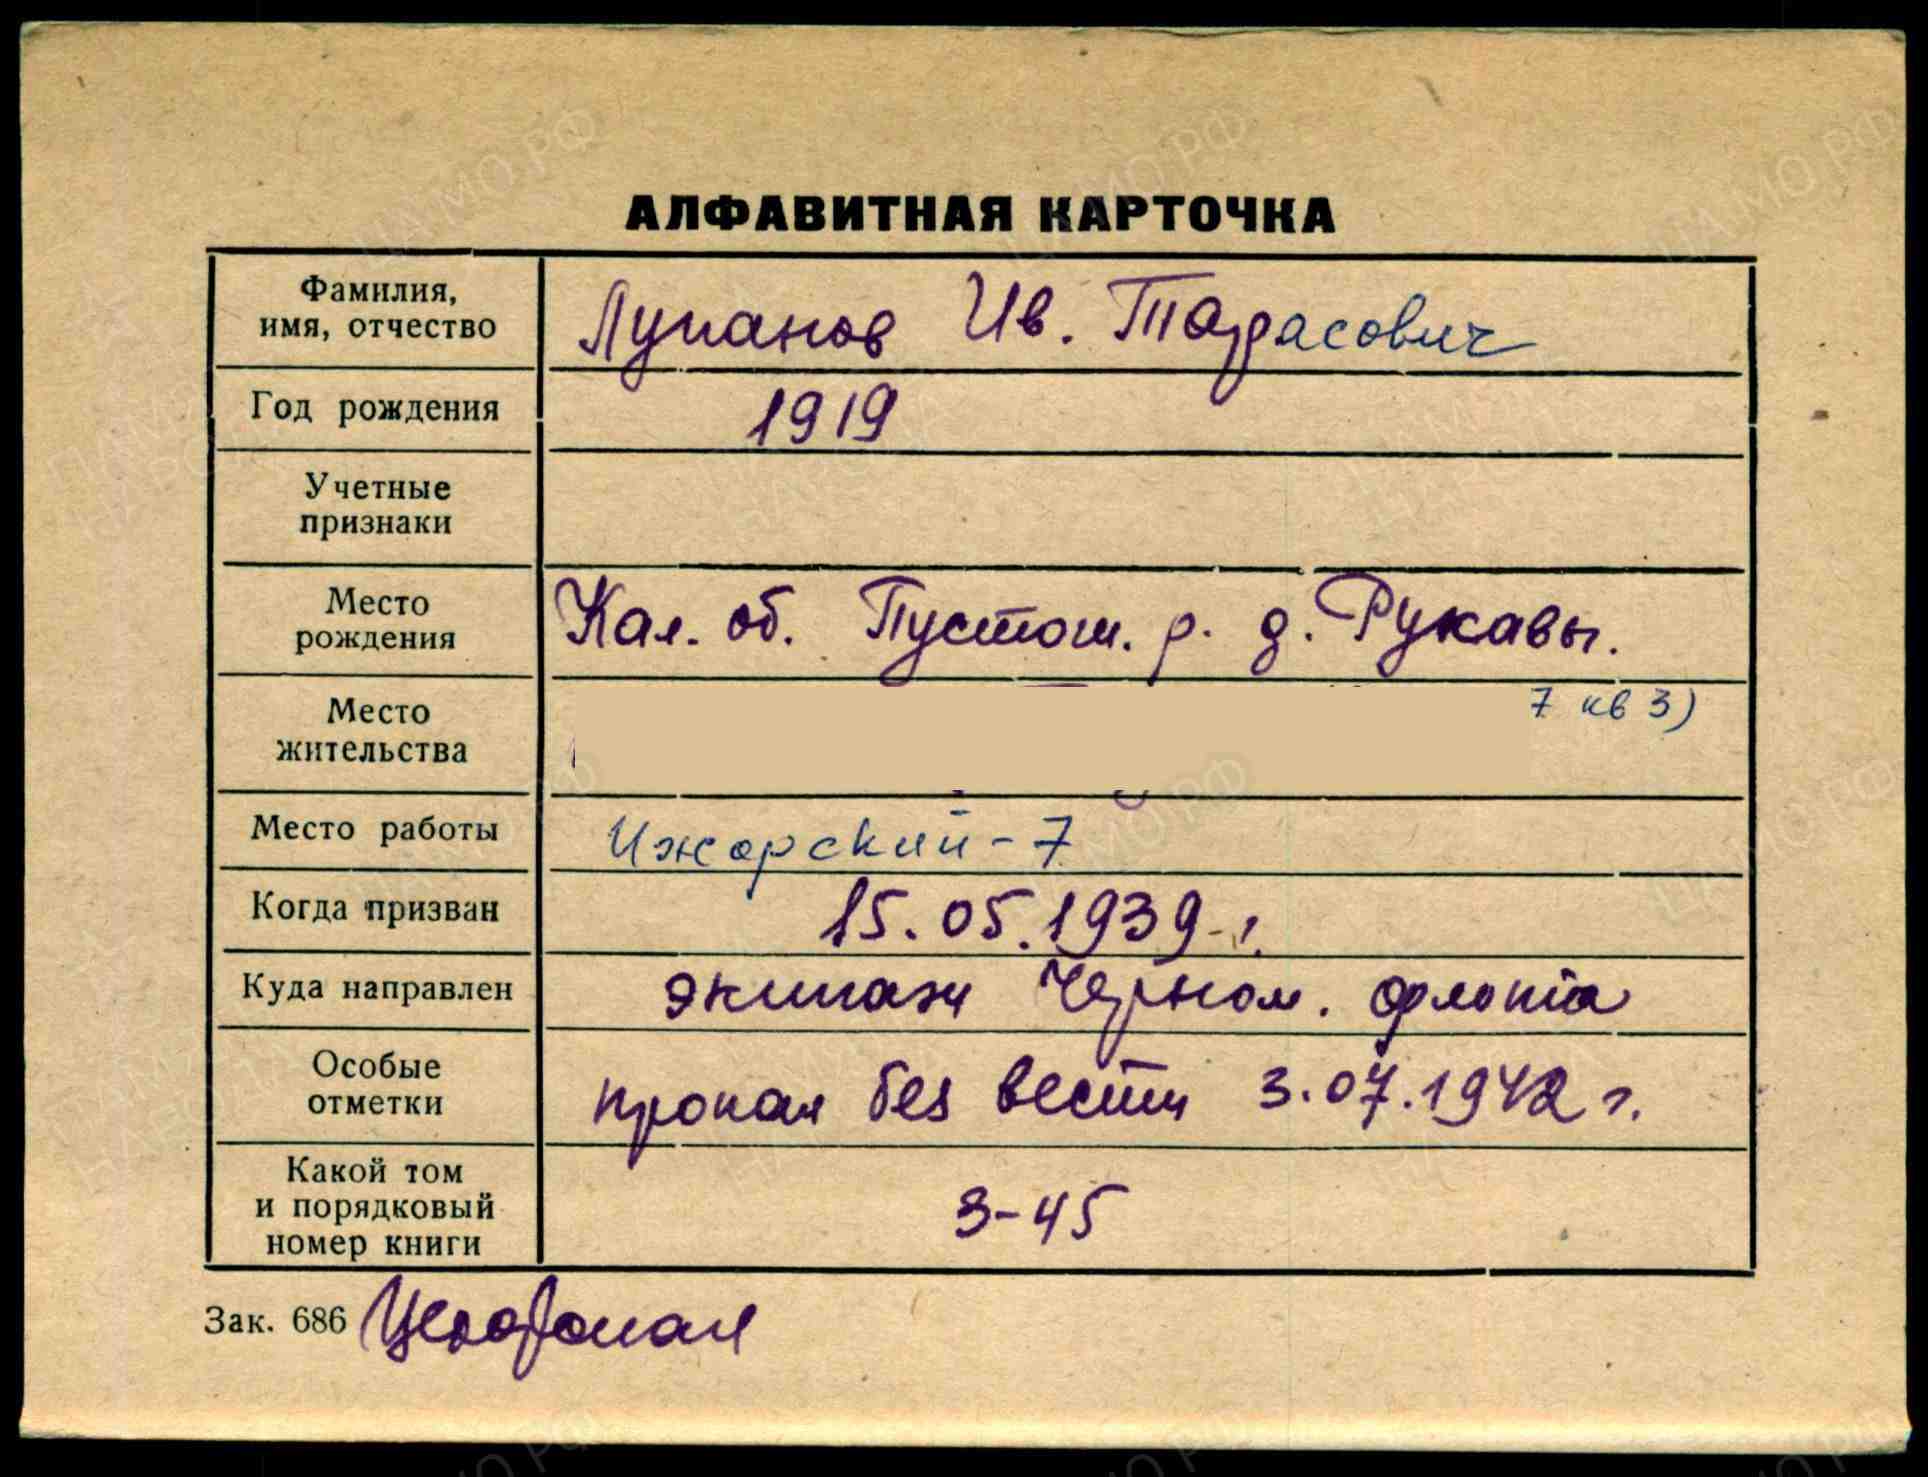 АЛФАВИТНАЯ КАРТОЧКА
Фамилия,
имя, отчество
Лупанов Ив. Тарасович
Год рождения
1919
Учетные
признаки
Место
рождения
Кал. об. Пустош. р. д. Рукавы.
Место
жительства
7 кв 3)
Место работы
Ижорский-7
Когда призван
15.05.1939 г.
Куда направлен
экипаж Черном. флота
Особые
отметки
пропал без вести 3.07.1942 г.
Какой том
и порядковый
номер книги
3-45
Зак. 686
ЦАМО РФ